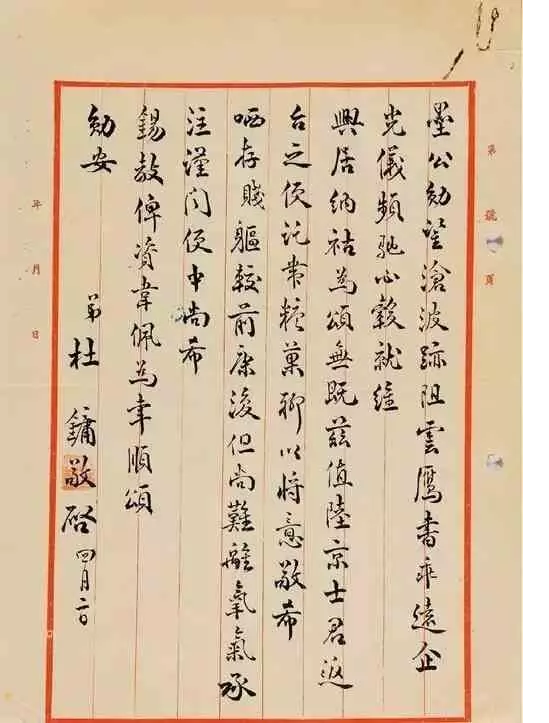 第 號 頁
墨公勛鑒滄波跡阻雲鴈書乖遠企
光儀頻馳心轂就諗
興居納祜為頌無既茲值陸京士君返
台之便託帶糖菓聊以將意敬希
哂存賤軀較前康復但尚難離氧氣承
注謹聞便中尚希
錫教俾資韋佩為幸順頌
勛安
弟杜鏞敬啓四月二日
年 月 日